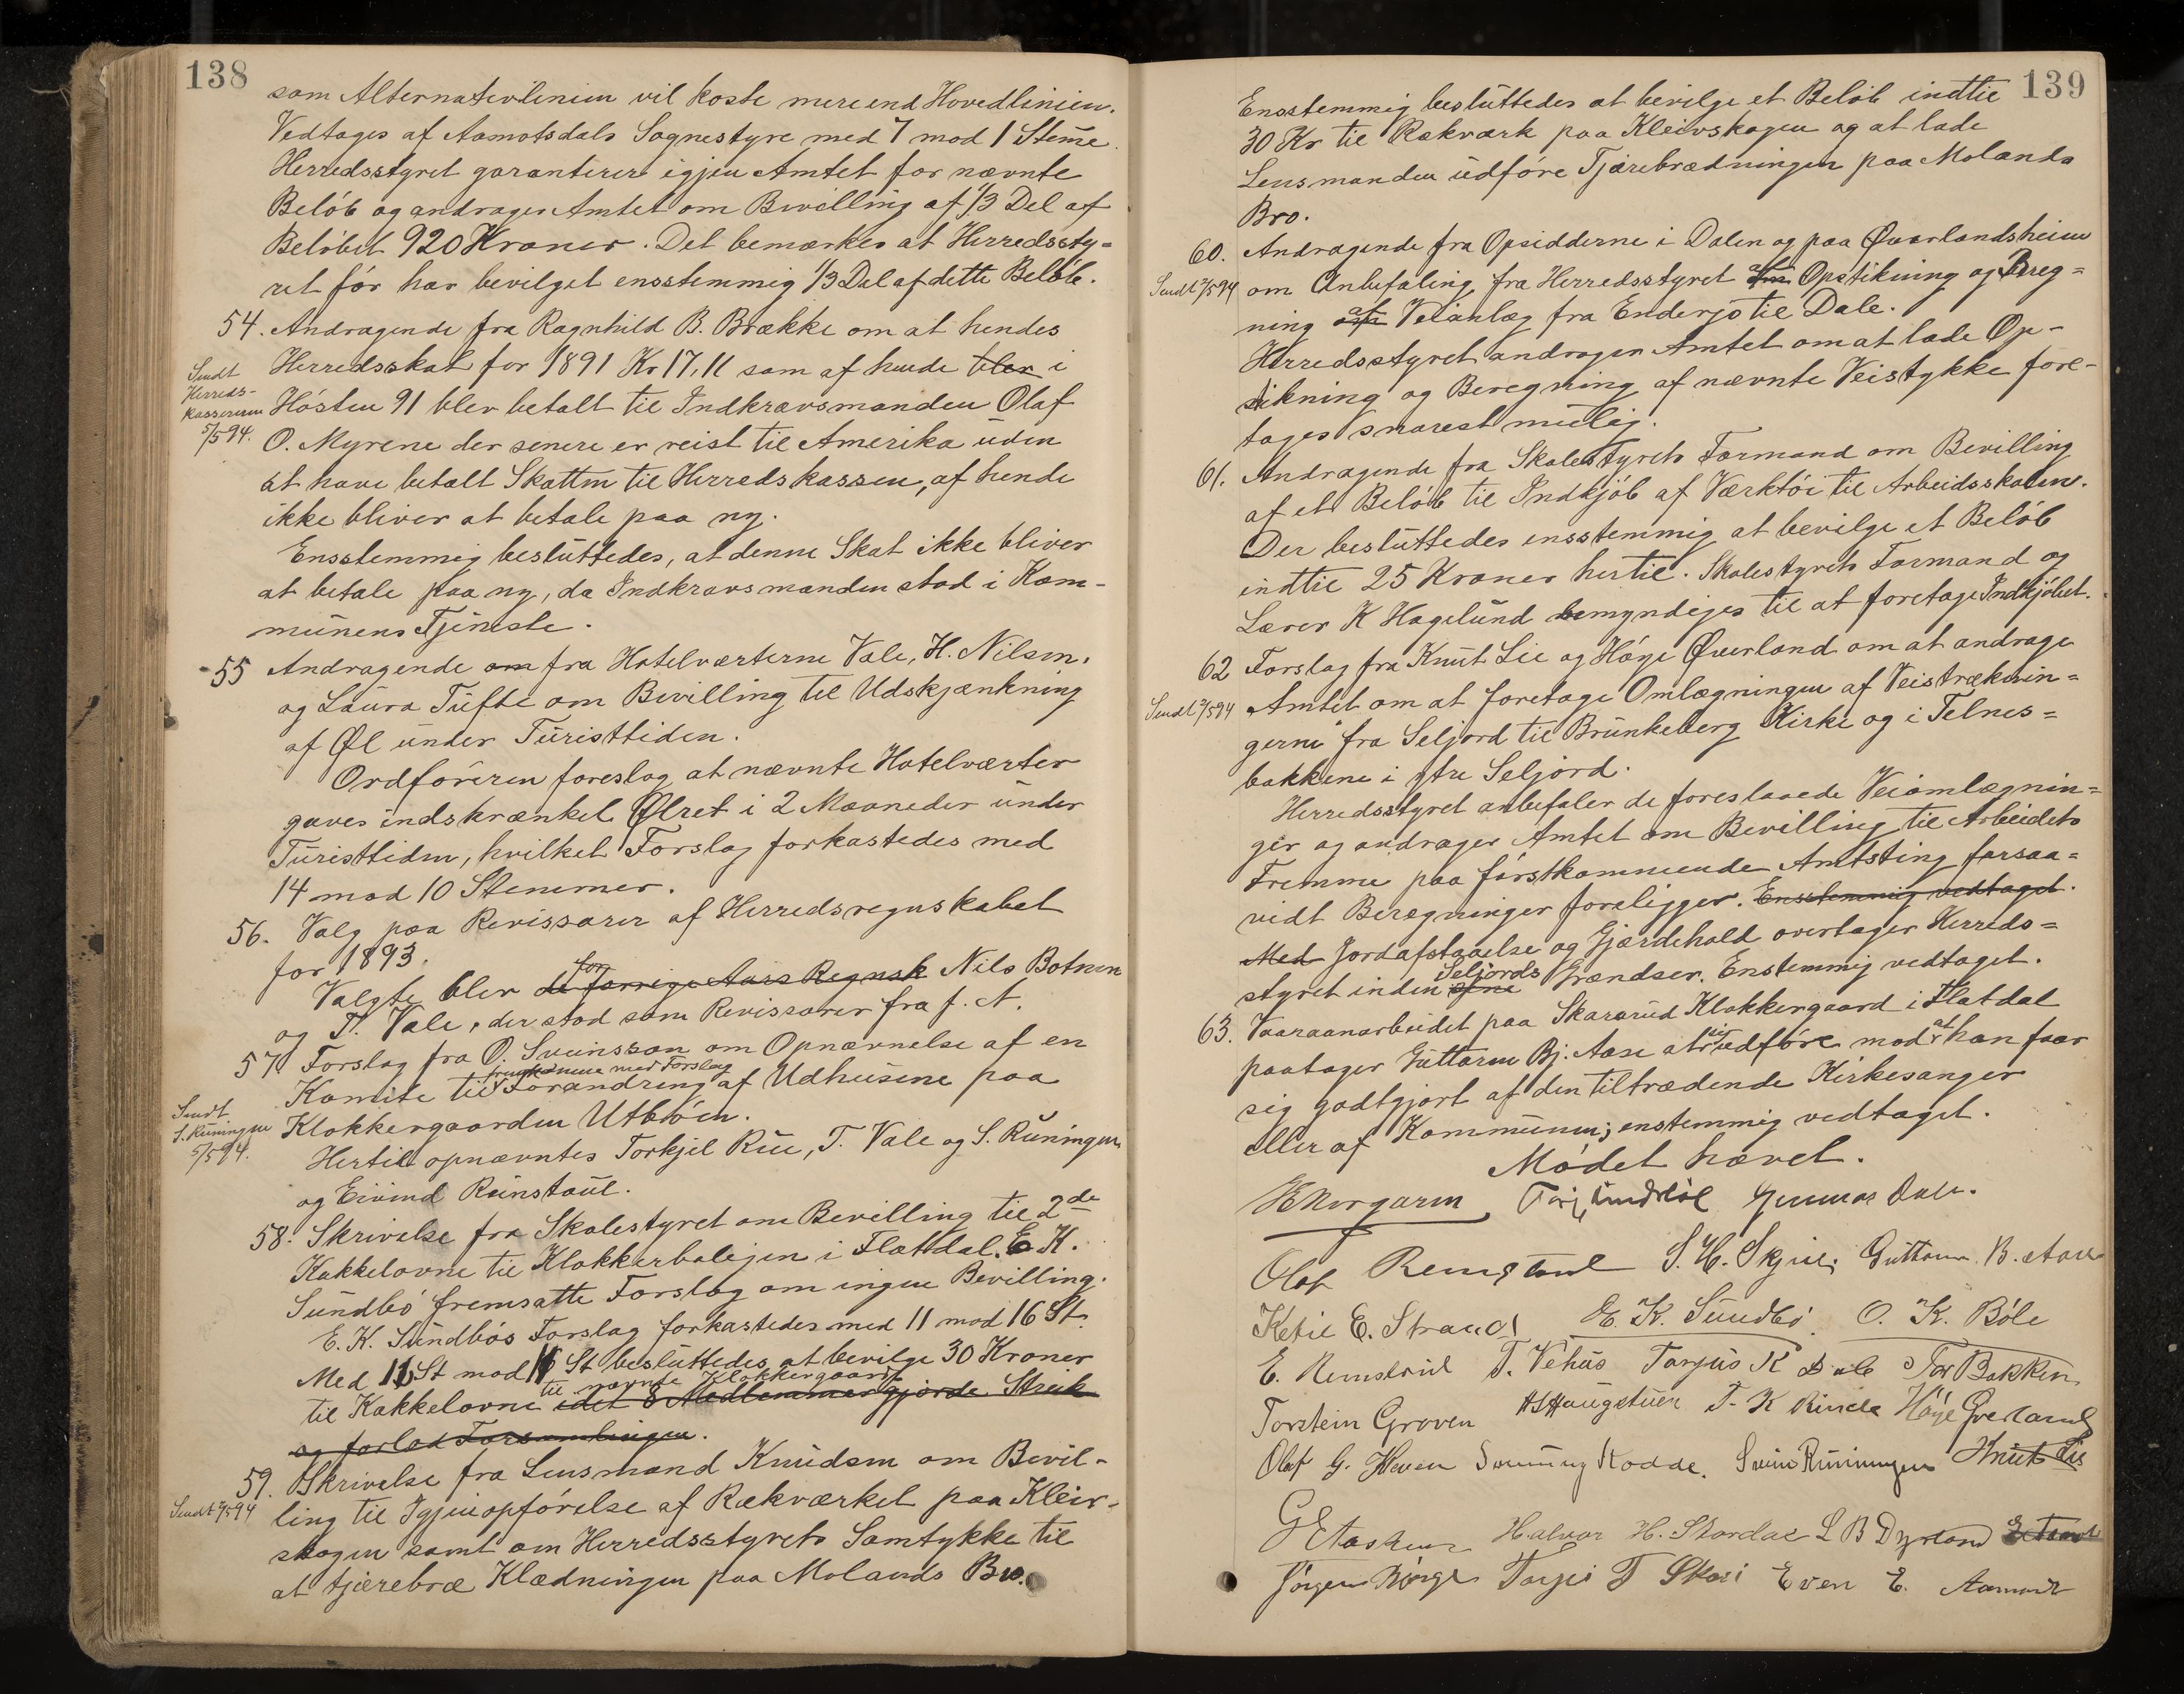 138
som Alternativlinien vil koste mere end Hovedlinien.
Vedtages af Aamotsdals Sognestyre med 7 mod 1 Stemme.
Herredsstyret garanterer igjen Amtet for nævnte
Beløb og andrager Amtet om Bevilling af 1/3 Del af
Beløbet 920 Kroner. Det bemærkes at Herredssty=
ret før har bevilget ensstemmig 1/3 Del af dette Beløb.
54. Andragende fra Ragnhild B. Brække om at hendes
Sendt Herreds-kassereren 5/5 94.
Herredsskat for 1891 Kr 17,11 som af hende blev i
Høsten 91 blev betalt til Indkrævsmanden Olaf
O. Myrene der senere er reist til Amerika uden
at have betalt Skatten til Herredskassen, af hende
ikke bliver at betale paa ny.
Ensstemmig besluttedes, at denne Skat ikke bliver
at betale paa ny, da Indkrævsmanden stod i Kom-
munens Tjeneste.
55 Andragende om fra Hotelværterne Vale, H. Nilsen.
og Laura Tufte om Bevilling til Udskjænkning
af Øl under Turisttiden.
Ordføreren foreslog at nævnte Hotelværter
gaves indskrænket Ølret i 2 Maaneder under
Turisttiden, hvilket Forslag forkastedes med
14 mod 10 Stemmer.
56. Valg paa Revissorer af Herredsregnskabet
for 1893.
Valgte blev de for forrige Aars Regnsk Nils Botnen
og T. Vale, der stod som Revissorer fra f. A.
57 Forslag fra O. Sveinsson om Opnævnelse af en
Komite til fremkomme med Forslag Forandring af Udhusene paa
Sendt S. Runingen 5/5 94.
Klokkergaarden Utbøen.
Hertil opnævntes Torkjel Rue, T. Vale og S. Runingen
og Eivind Reinstaul.
58. Skrivelse fra Skolestyret om Bevilling til 2de
Kakkelovne til Klokkerboligen i Flatdal. E. K.
Sundbø fremsatte Forslag om ingen Bevilling.
E. K. Sundbøs Forslag forkastedes med 11 mod 16 St.
Med 16 St mod 11 St besluttedes at bevilge 30 Kroner
til Kakkelovne til nævnte Klokkergaard idet 8 Medlemmer gjorde Streik
og forlod Forsamlingen.
59. Skrivelse fra Lensmand Knudsen om Bevil-
Sendt 7/5 94
ling til Igjenopførelse af Rækværket paa Kleiv-
skogen samt om Herredsstyrets Samtykke til
at tjærebræ Klædningen paa Molands Bro.
139
Ensstemmig besluttedes at bevilge et Beløb indtil
30 Kr til Rækværk paa Kleivskogen og at lade
Lensmanden udføre Tjærebrædningen paa Molands
Bro.
60. Andragende fra Opsidderne i Dalen og paa Øverlandsheien
Sendt 7/5 94
om Anbefaling fra Herredsstyret af Opstikning og Breg=
ning af Veianlæg fra Enderjo til Dale.
Herredsstyret andrager Amtet om at lade Op-
stikning og Beregning af nævnte Veistykke fore-
tages snarest mulig.
61. Andragende fra Skolestyrets Formand om Bevilling
af et Beløb til Indkjøb af Værktøi til Arbeidsskolen.
Der besluttedes ensstemmig at bevilge et Beløb
indtil 25 Kroner hertil. Skolestyrets Formand og
Lærer K Hagelund bemyndiges til at foretage Indkjøbet.
62 Forslag fra Knut Lie og Høye Øverland om at andrage
Sendt 7/5 94
Amtet om at foretage Omlægningen af Veistræknin=
gerne fra Seljord til Brunkeberg Kirke og i Telnes=
bakkene i ytre Seljord.
Herredsstyret anbefaler de foreslaaede Veiomlægnin=
ger og andrager Amtet om Bevilling til Arbeidets
Fremme paa førstkommende Amtsting forsaa=
vidt Beregninger foreligger. Ensstemmig vedtaget.
Med Jordafstaaelse og Gjærdehold overtager Herreds=
styret inden Seljords Grændser. Enstemmig vedtaget.
63. Vaaraanarbeidet paa Skararud Klokkergaard i Flatdal
paatager Guttorm Bj. Aase sig at udføre mod at han faar
sig godtgjort af den tiltrædende Kirkesanger
eller af Kommunen; enstemmig vedtaget.
Mødet hævet.
Gunnar Dale.
Olaf S. H. Skgie. Guttorm B. Aase
Ketil E. Strand E. K. Sundbø. O. K. Bøle
E. Reinstaul T. Vehus Tarjus K Dale Tor Bakken
Torstein Groven HSHaugetuen T. K Rinde Høye Øverland
Olaf G. Heven Svein Runningen Knut Lie
Halvor H. Skordal L B Dyrland
Jørgen Børge Torjei T Skori Even E. Aamodt